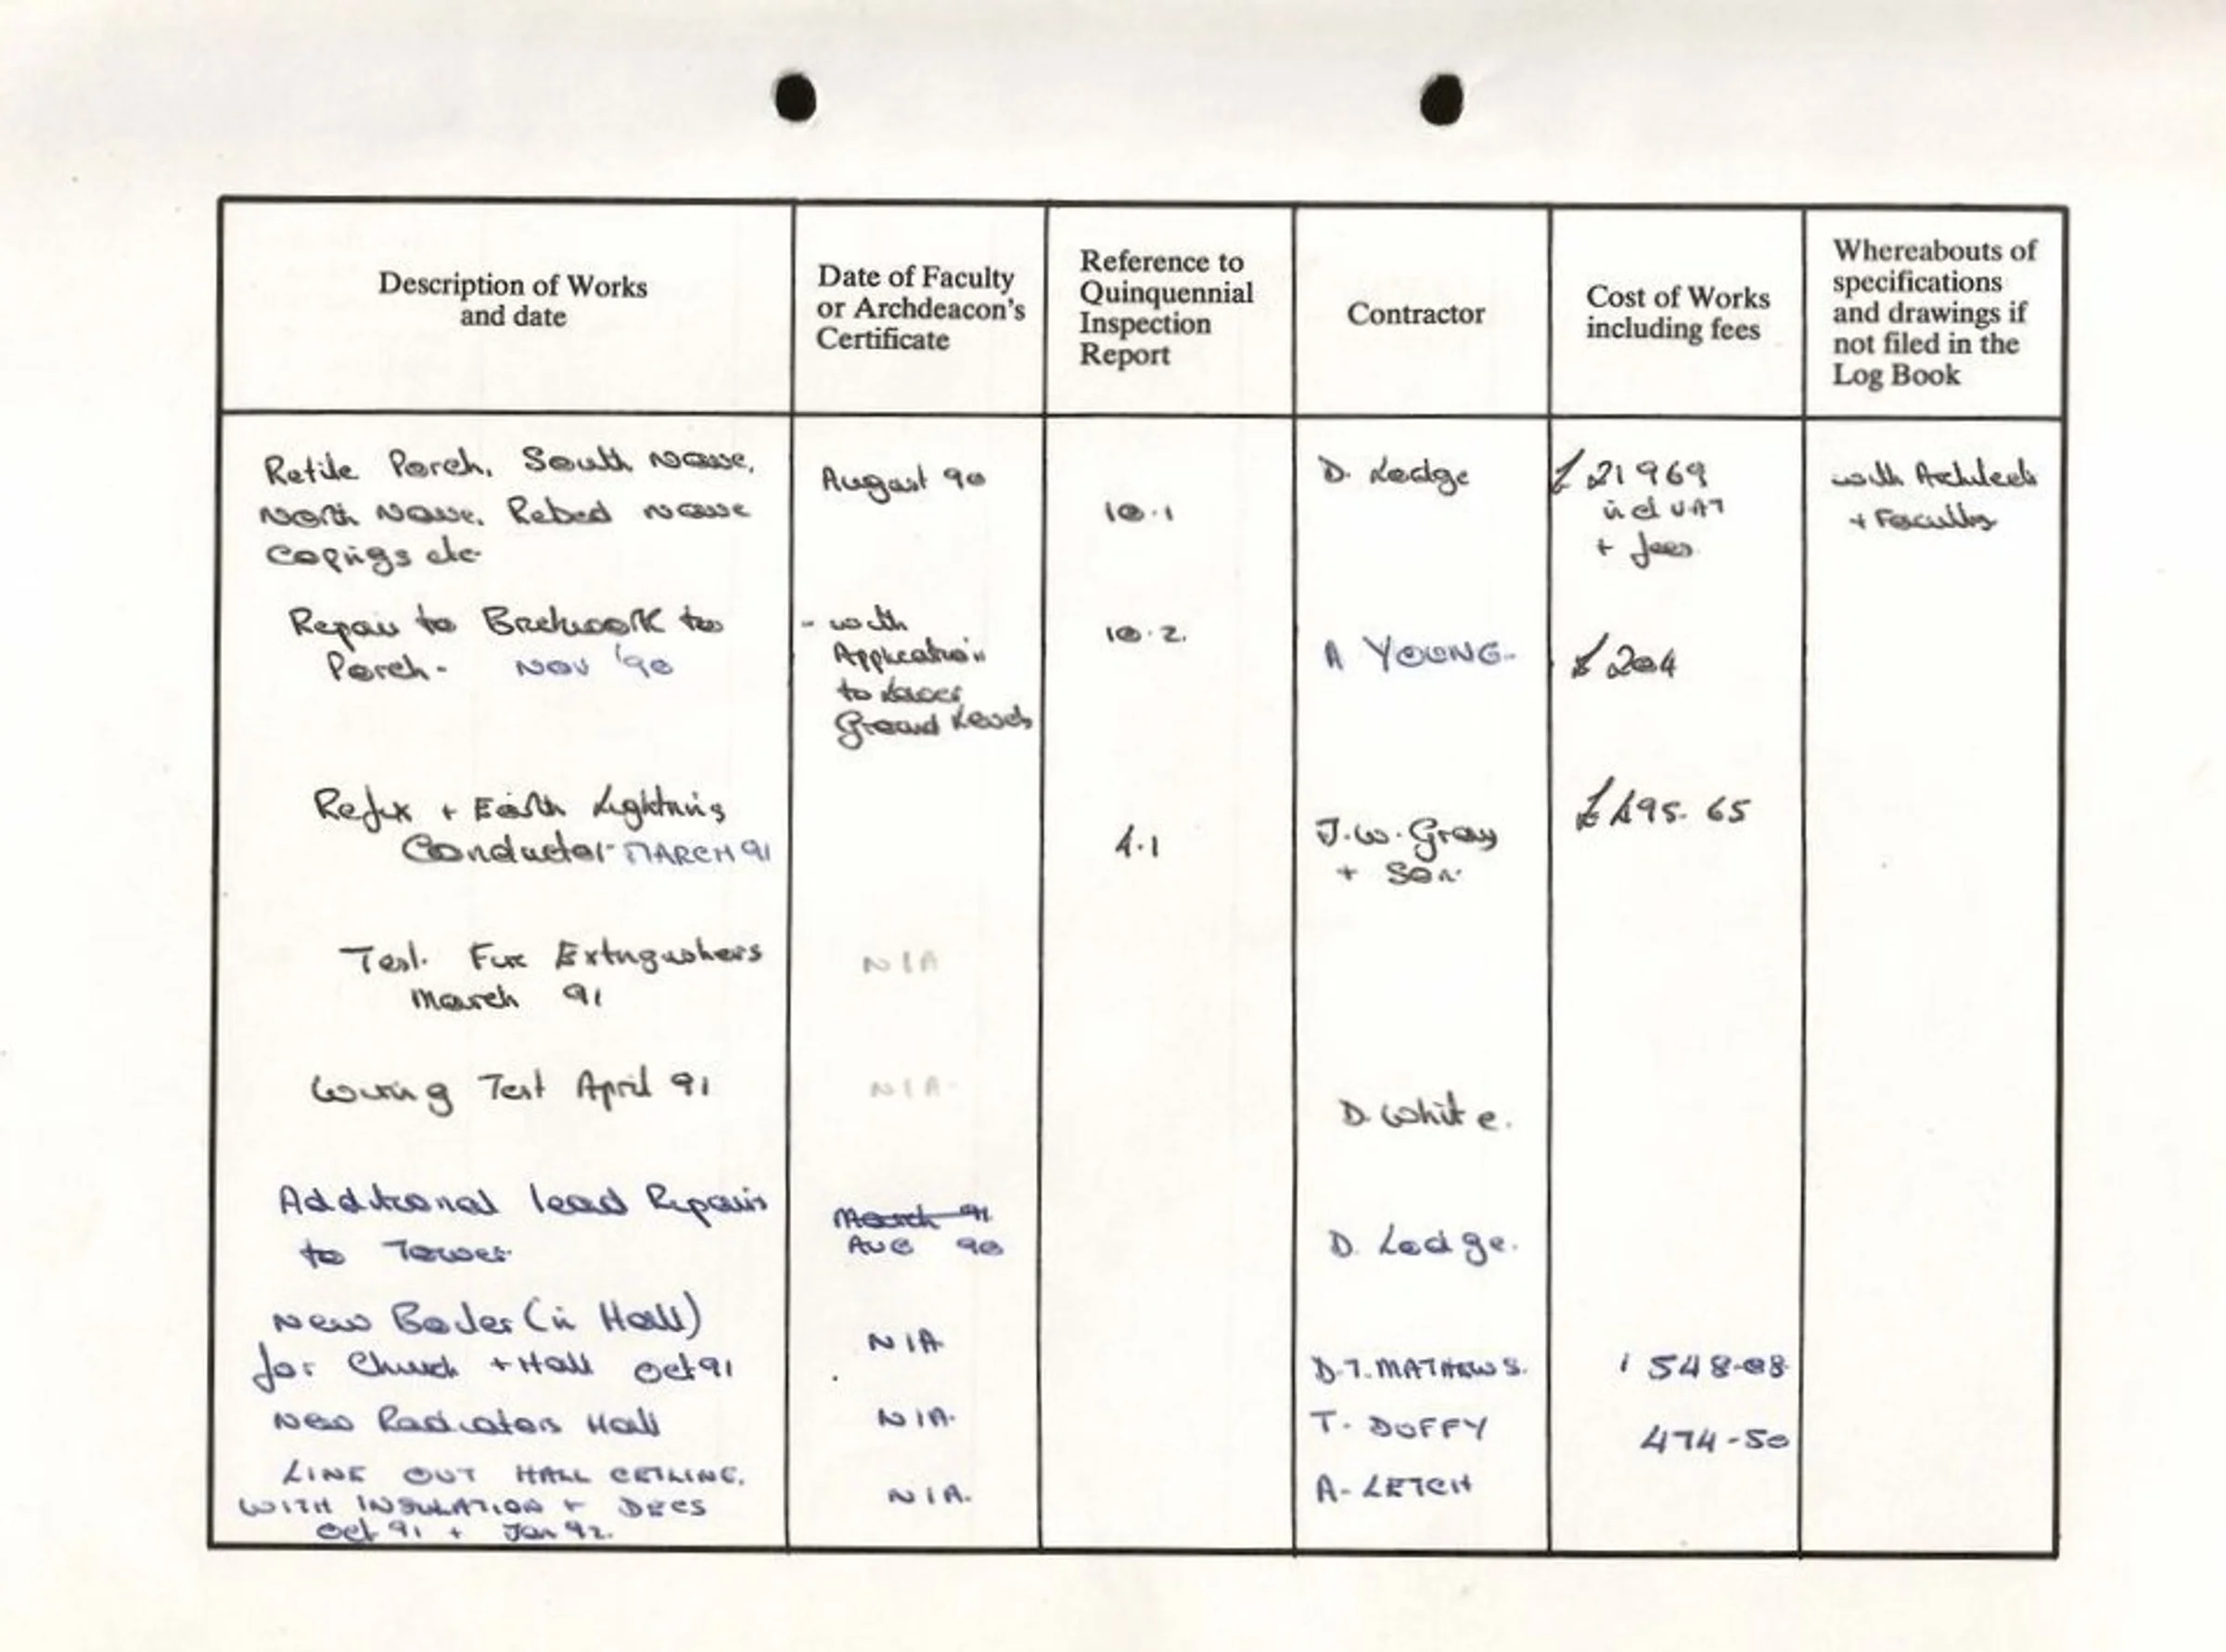 Description of Works
and date
Date of Faculty
or Archdeacon's
Certificate
Reference to
Quinquennial
Inspection
Report
Contractor
Cost of Works
including fees
Whereabouts of
specifications
and drawings if
not filed in the
Log Book
Retile Porch, South Nave,
North Nave. Rebed nave
Copings etc
August 90
10.1
D. Lodge
£21969
incl VAT
+ fees
with Architect
+ Faculty
Repair to Brickwork to
Porch - NOV '90
- with
Application
to Lower
Ground Levels
10.2.
A YOUNG-
£204
Refix + Earth Lightning
Conductor MARCH 91
4.1
J.W. Gray
+ Son.
£495.65
Test. Fire Extinguishers
March 91
N/A
Wiring Test April 91
N/A
D. White.
Additional lead Repairs
to Tower
March 91
AUG 90
D. Lodge.
New Boiler (in Hall)
for Church + Hall Oct 91
N/A
D.T. MATHEWS.
1548-08
New Radiators Hall
N/A.
T. DUFFY
474-50
LINE OUT HALL CEILING.
WITH INSULATION +
Oct 91 + Jan 92.
N/A.
A- LETCH